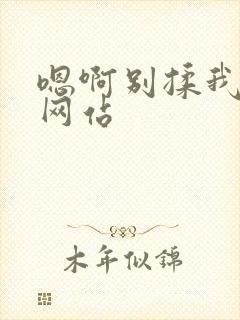 嗯啊别揉我
网佔
木年似錦